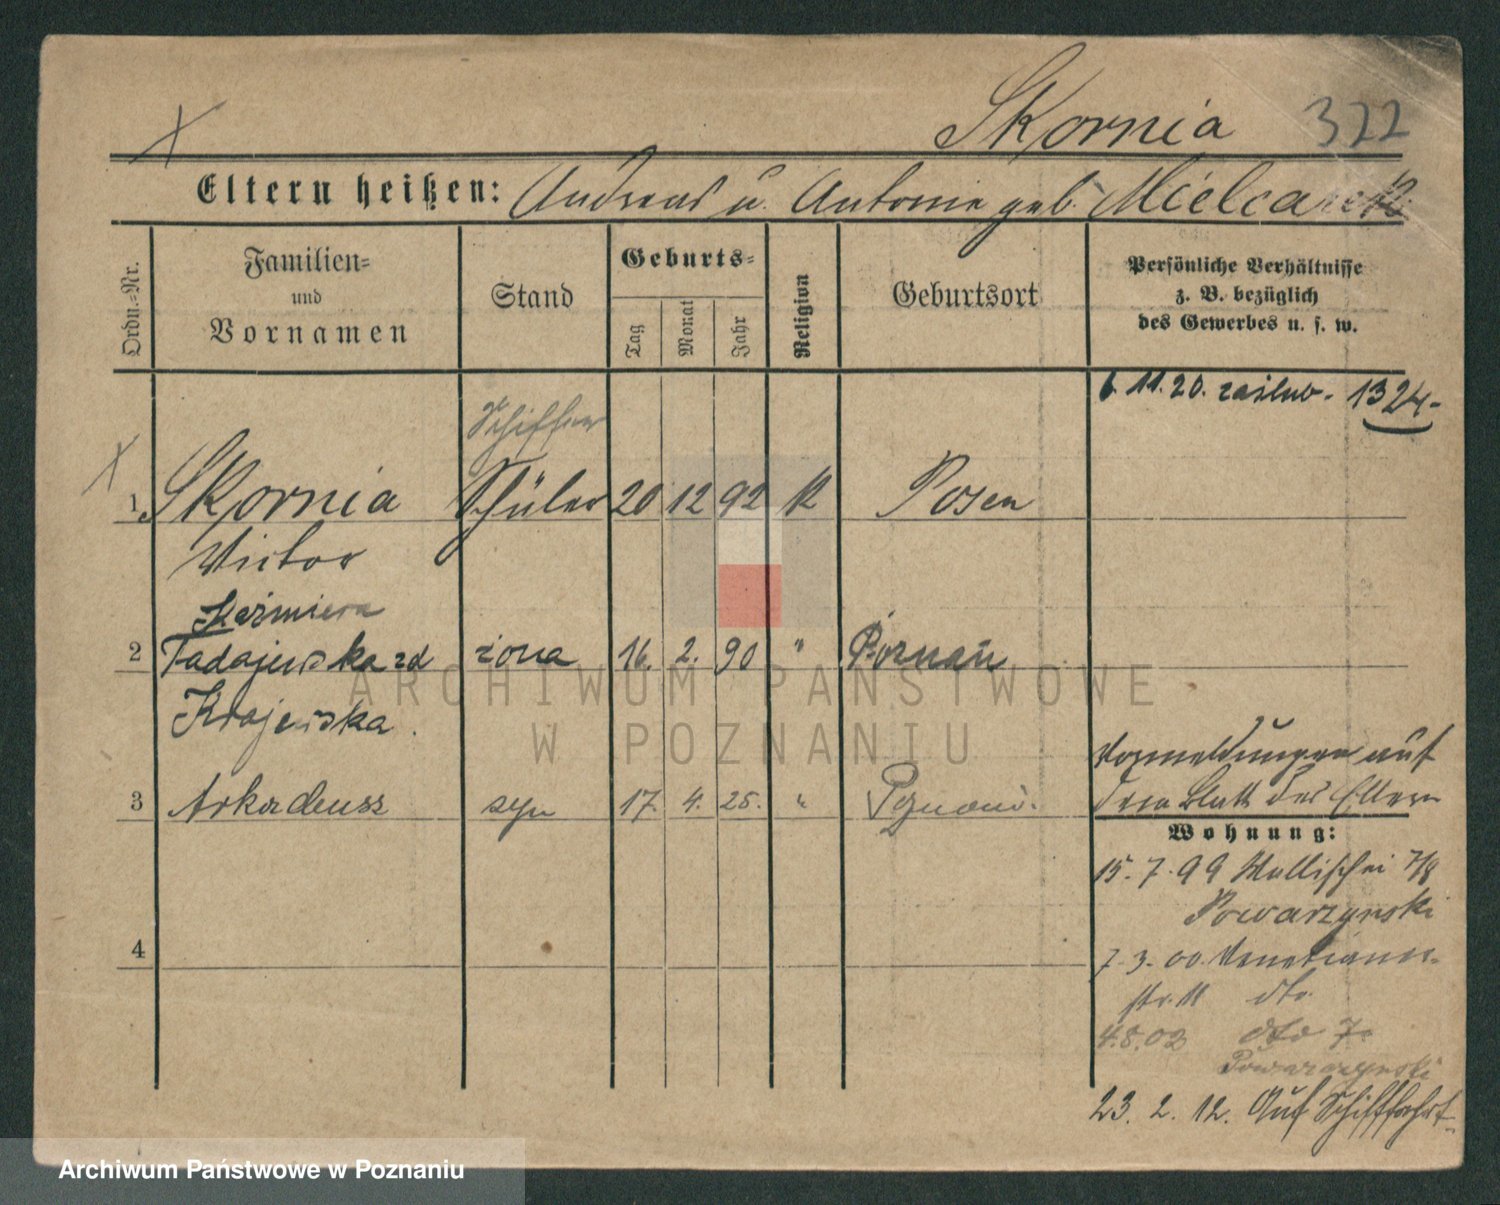 Skornia 322
Eltern heißen: Andreas u. Antonie geb. Mielcarek
Ordn.-Nr.
Familien-
und
Vornamen
Stand
Geburts-
Tag
Monat
Jahr
Religion
Geburtsort
Persönliche Verhältnisse
z. B. bezüglich
des Gewerbes u. s. w.
6.11.20. zaślub. 1324-
Schiffer
1 Skornia Schüler 20 12 92 K Posen
Victor
Kaźmiera
2 Tadajewska zd żona 16. 2. 90 " Poznań
Krajewska.
3 Arkadeusz syn 17. 4. 25. " Poznań.
Vormeldungen auf
dem Blatt der Eltern
Wohnung:
15.7.99 Wallischei 7/8
Powarzynski
4
7.3.00 Venetianer-
str. 11 dto.
4.8.02 dto 7.
Powarzynski
23.2.12. Auf Schifffahrt
ARCHIWUM PAŃSTWOWE
W POZNANIU
Archiwum Państwowe w Poznaniu